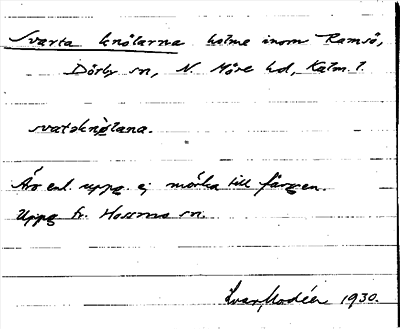 Svarta knölarna holme inom Ramsö,
Dörby sn, N. Möre hd, Kalm. l.
svataknölana.
Är enl. uppg. ej mörka till färgen.
Uppg. fr. Hossmo sn.
Ivar Modéer 1930.